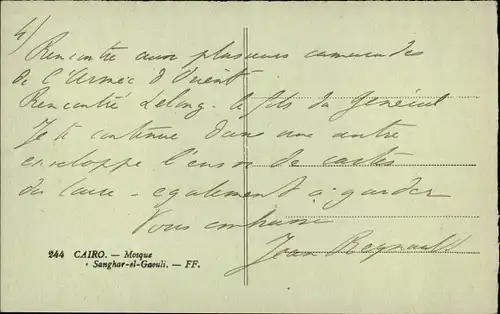 4/
Rencontré aussi plusieurs camarades
de l'Armée d'Orient
Rencontré Lelong - le fils du Général
Je te continue dans une autre
enveloppe l'envoi de cartes
du Caire - egalement à garder
Vous embrasse
Jean Reynault
244 CAIRO. — Mosque
Sanghar-el-Gaouli. — FF.